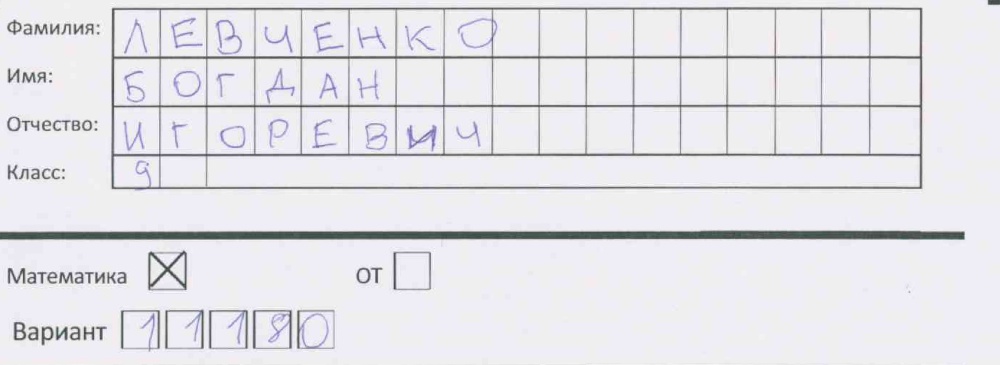 Фамилия: ЛЕВЧЕНКО
Имя: БОГДАН
Отчество: ИГОРЕВИЧ
Класс: 9
Математика ☒ ОТ ☐
Вариант 11180